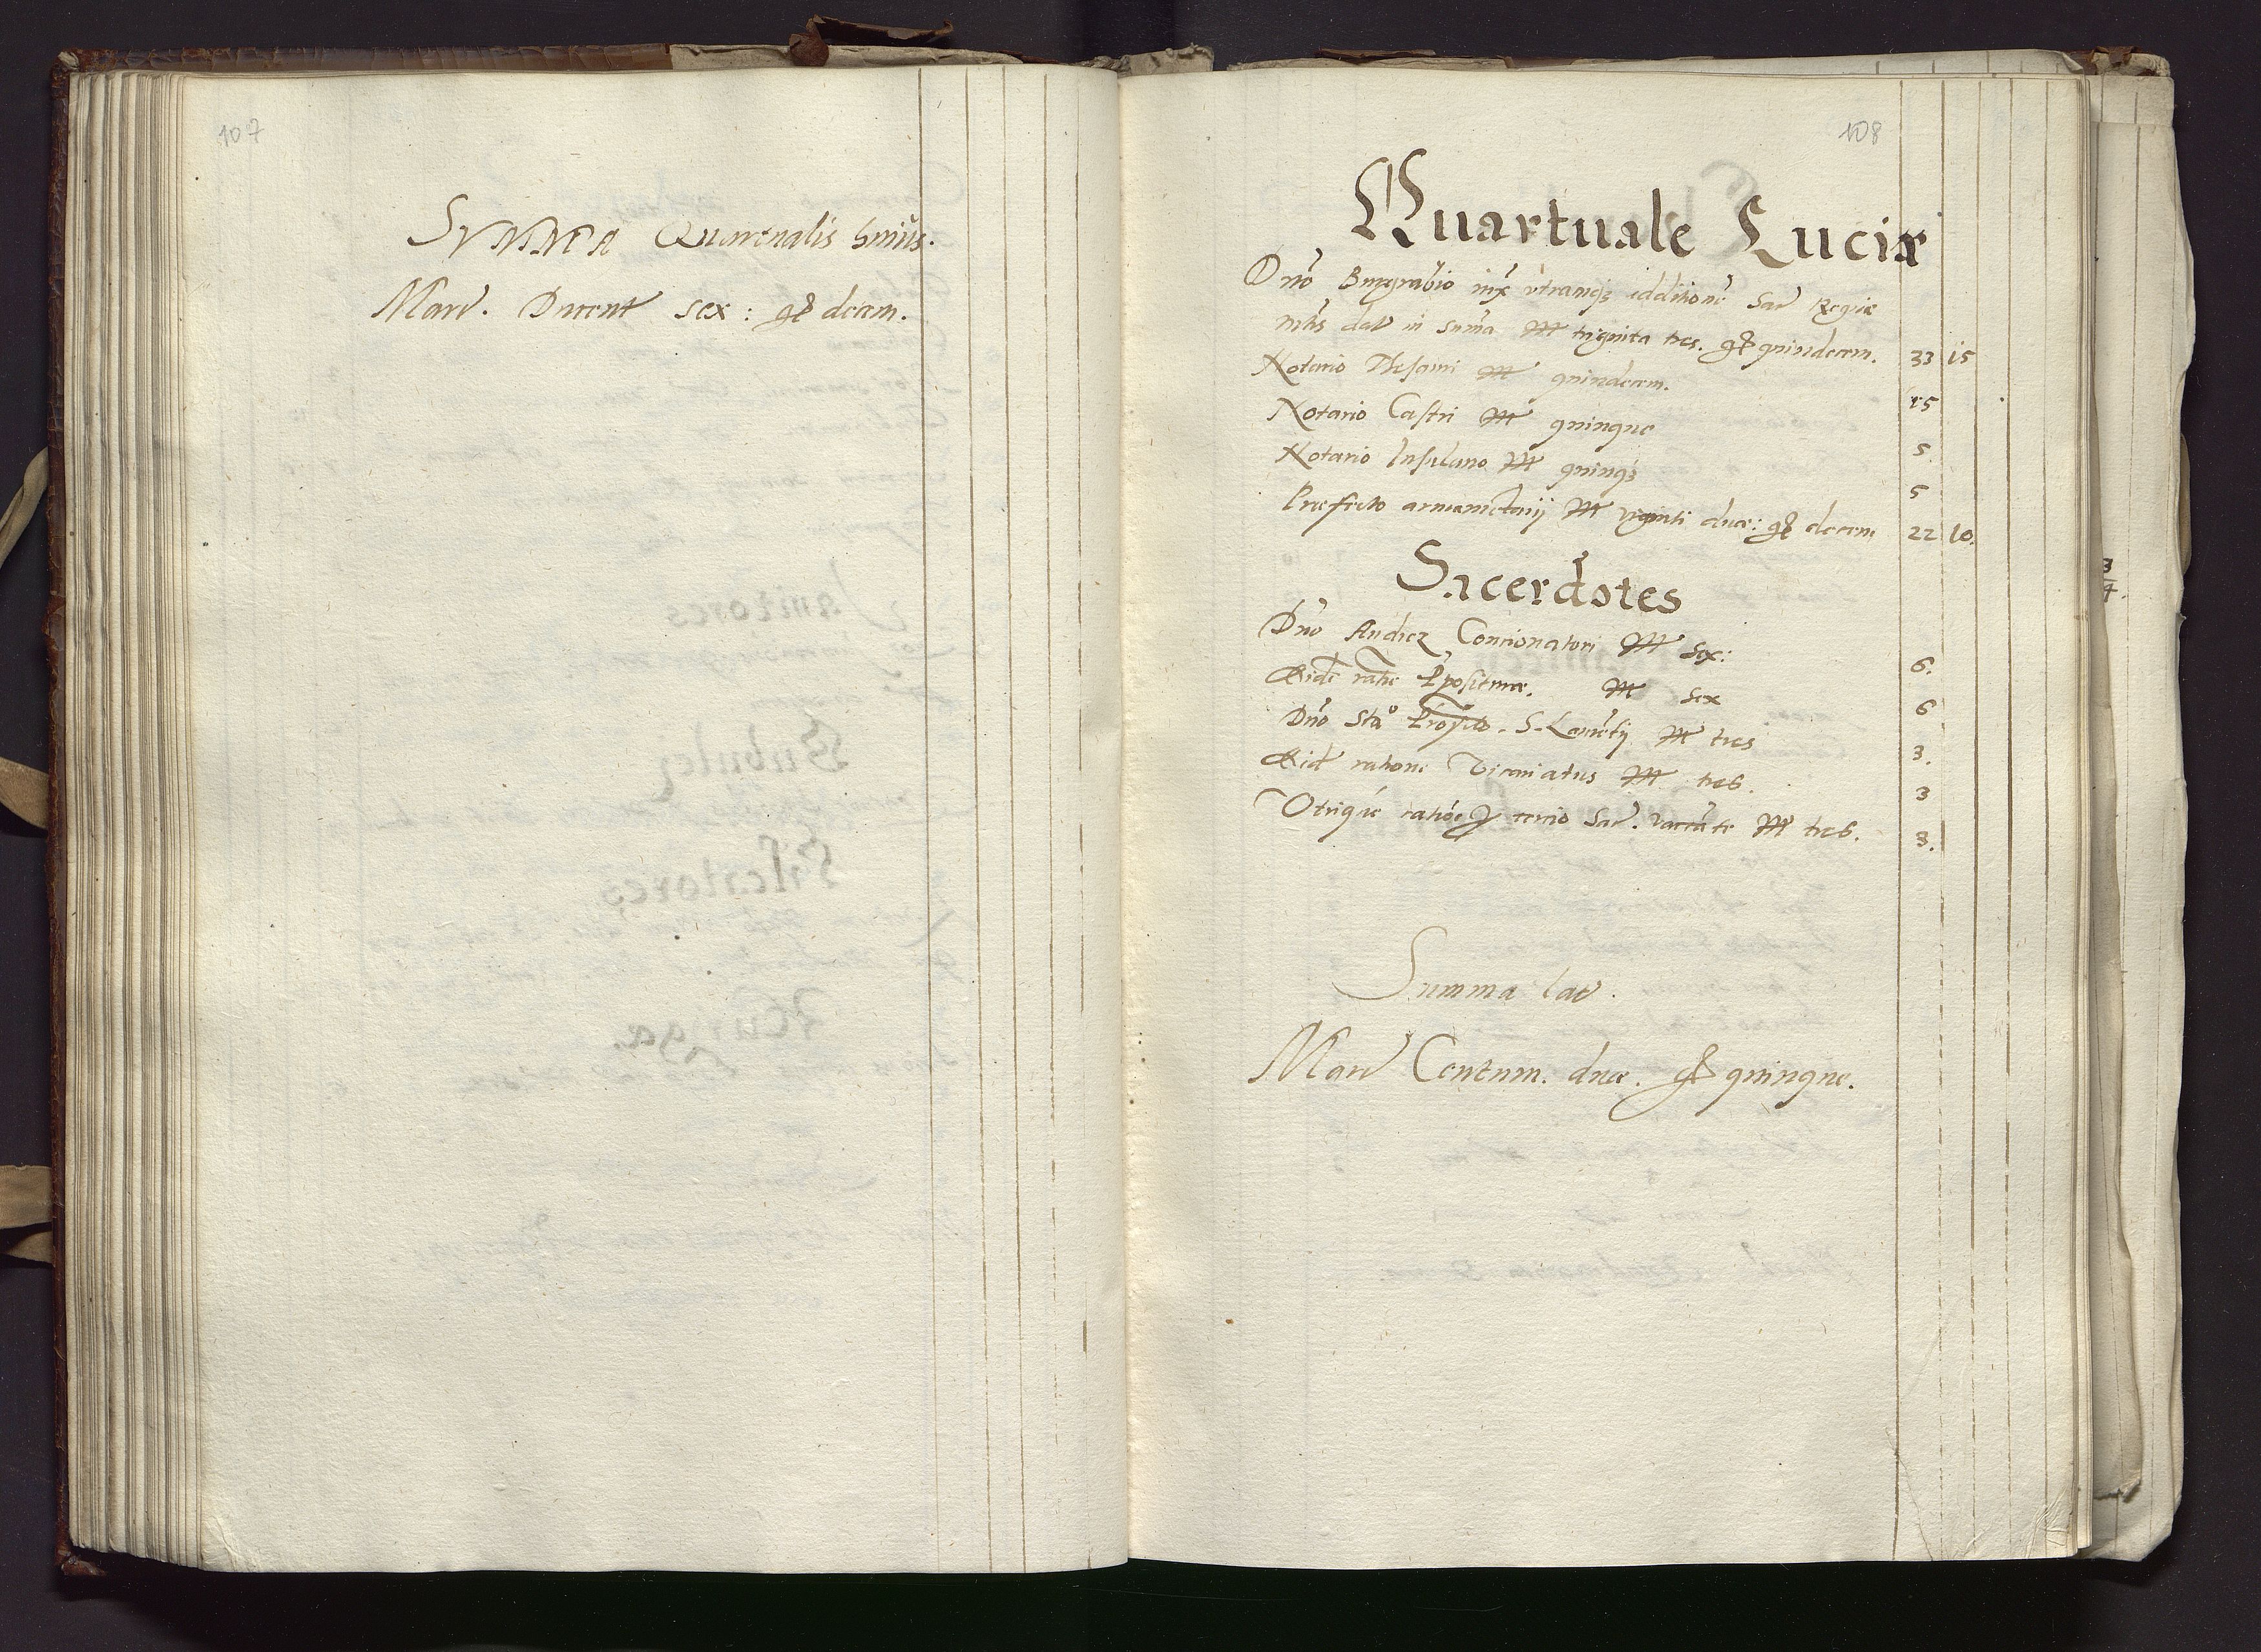 107
SVMMA Quarenalis huius.
Marc. Ducent sex: gr decem.
108
Quartuale Luciæ
Dno Burgrabio iux utramq3 additione Sac Regiæ
Mtis dat in suma M triginta tres. gr quindecem. 33 15
Notario Thesauri M quindecem. 15
Notario Castri M quinque 5
Notario Insulano M quinq3 5
Præfecto armametarij M viginti duæ: gr decem 22 10.
Sacerdotes
Dno Andreæ Concionatori M sex: 6.
Eide ratne Ppositure. M sex 6
Dno Sta° Proposito. S. Laure͂tij M tres 3.
Eide ratione Vicariatus M tres. 3
Vtriq́ue ratióe tercio Sac. vacca͂te M tres. 3.
Summa lat.
Marc Centum. duæ. gr quinque.
3
4.